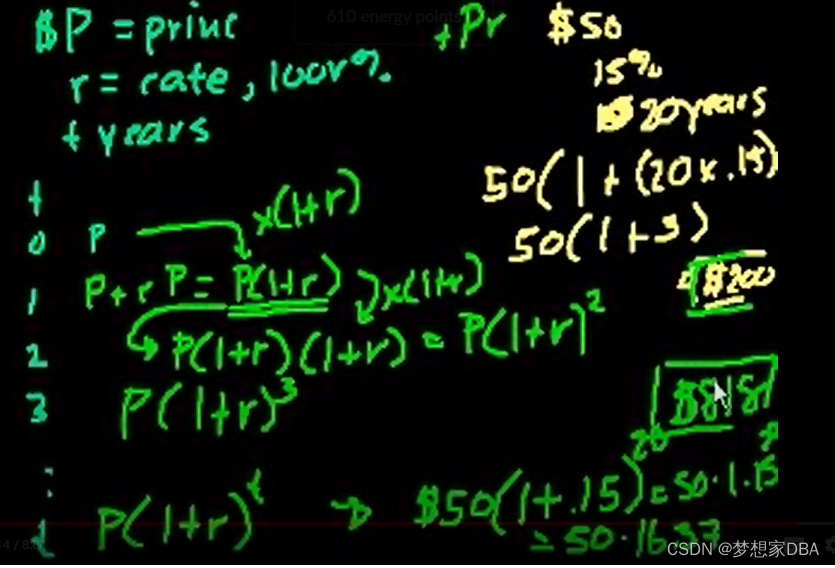 610 energy points
$P = princ
r = rate, 100r%.
t years
+Pr
$50
15%
20 years
50(1 + (20x.15)
50(1+3)
$200
t
0 P x(1+r)
1 P + r P = P(1+r) x(1+r)
2 P(1+r)(1+r) = P(1+r)²
3 P(1+r)³
t P(1+r)ᵗ → $50(1+.15)²⁰ = 50·1.15
= 50·16.37
CSDN @梦想家DBA